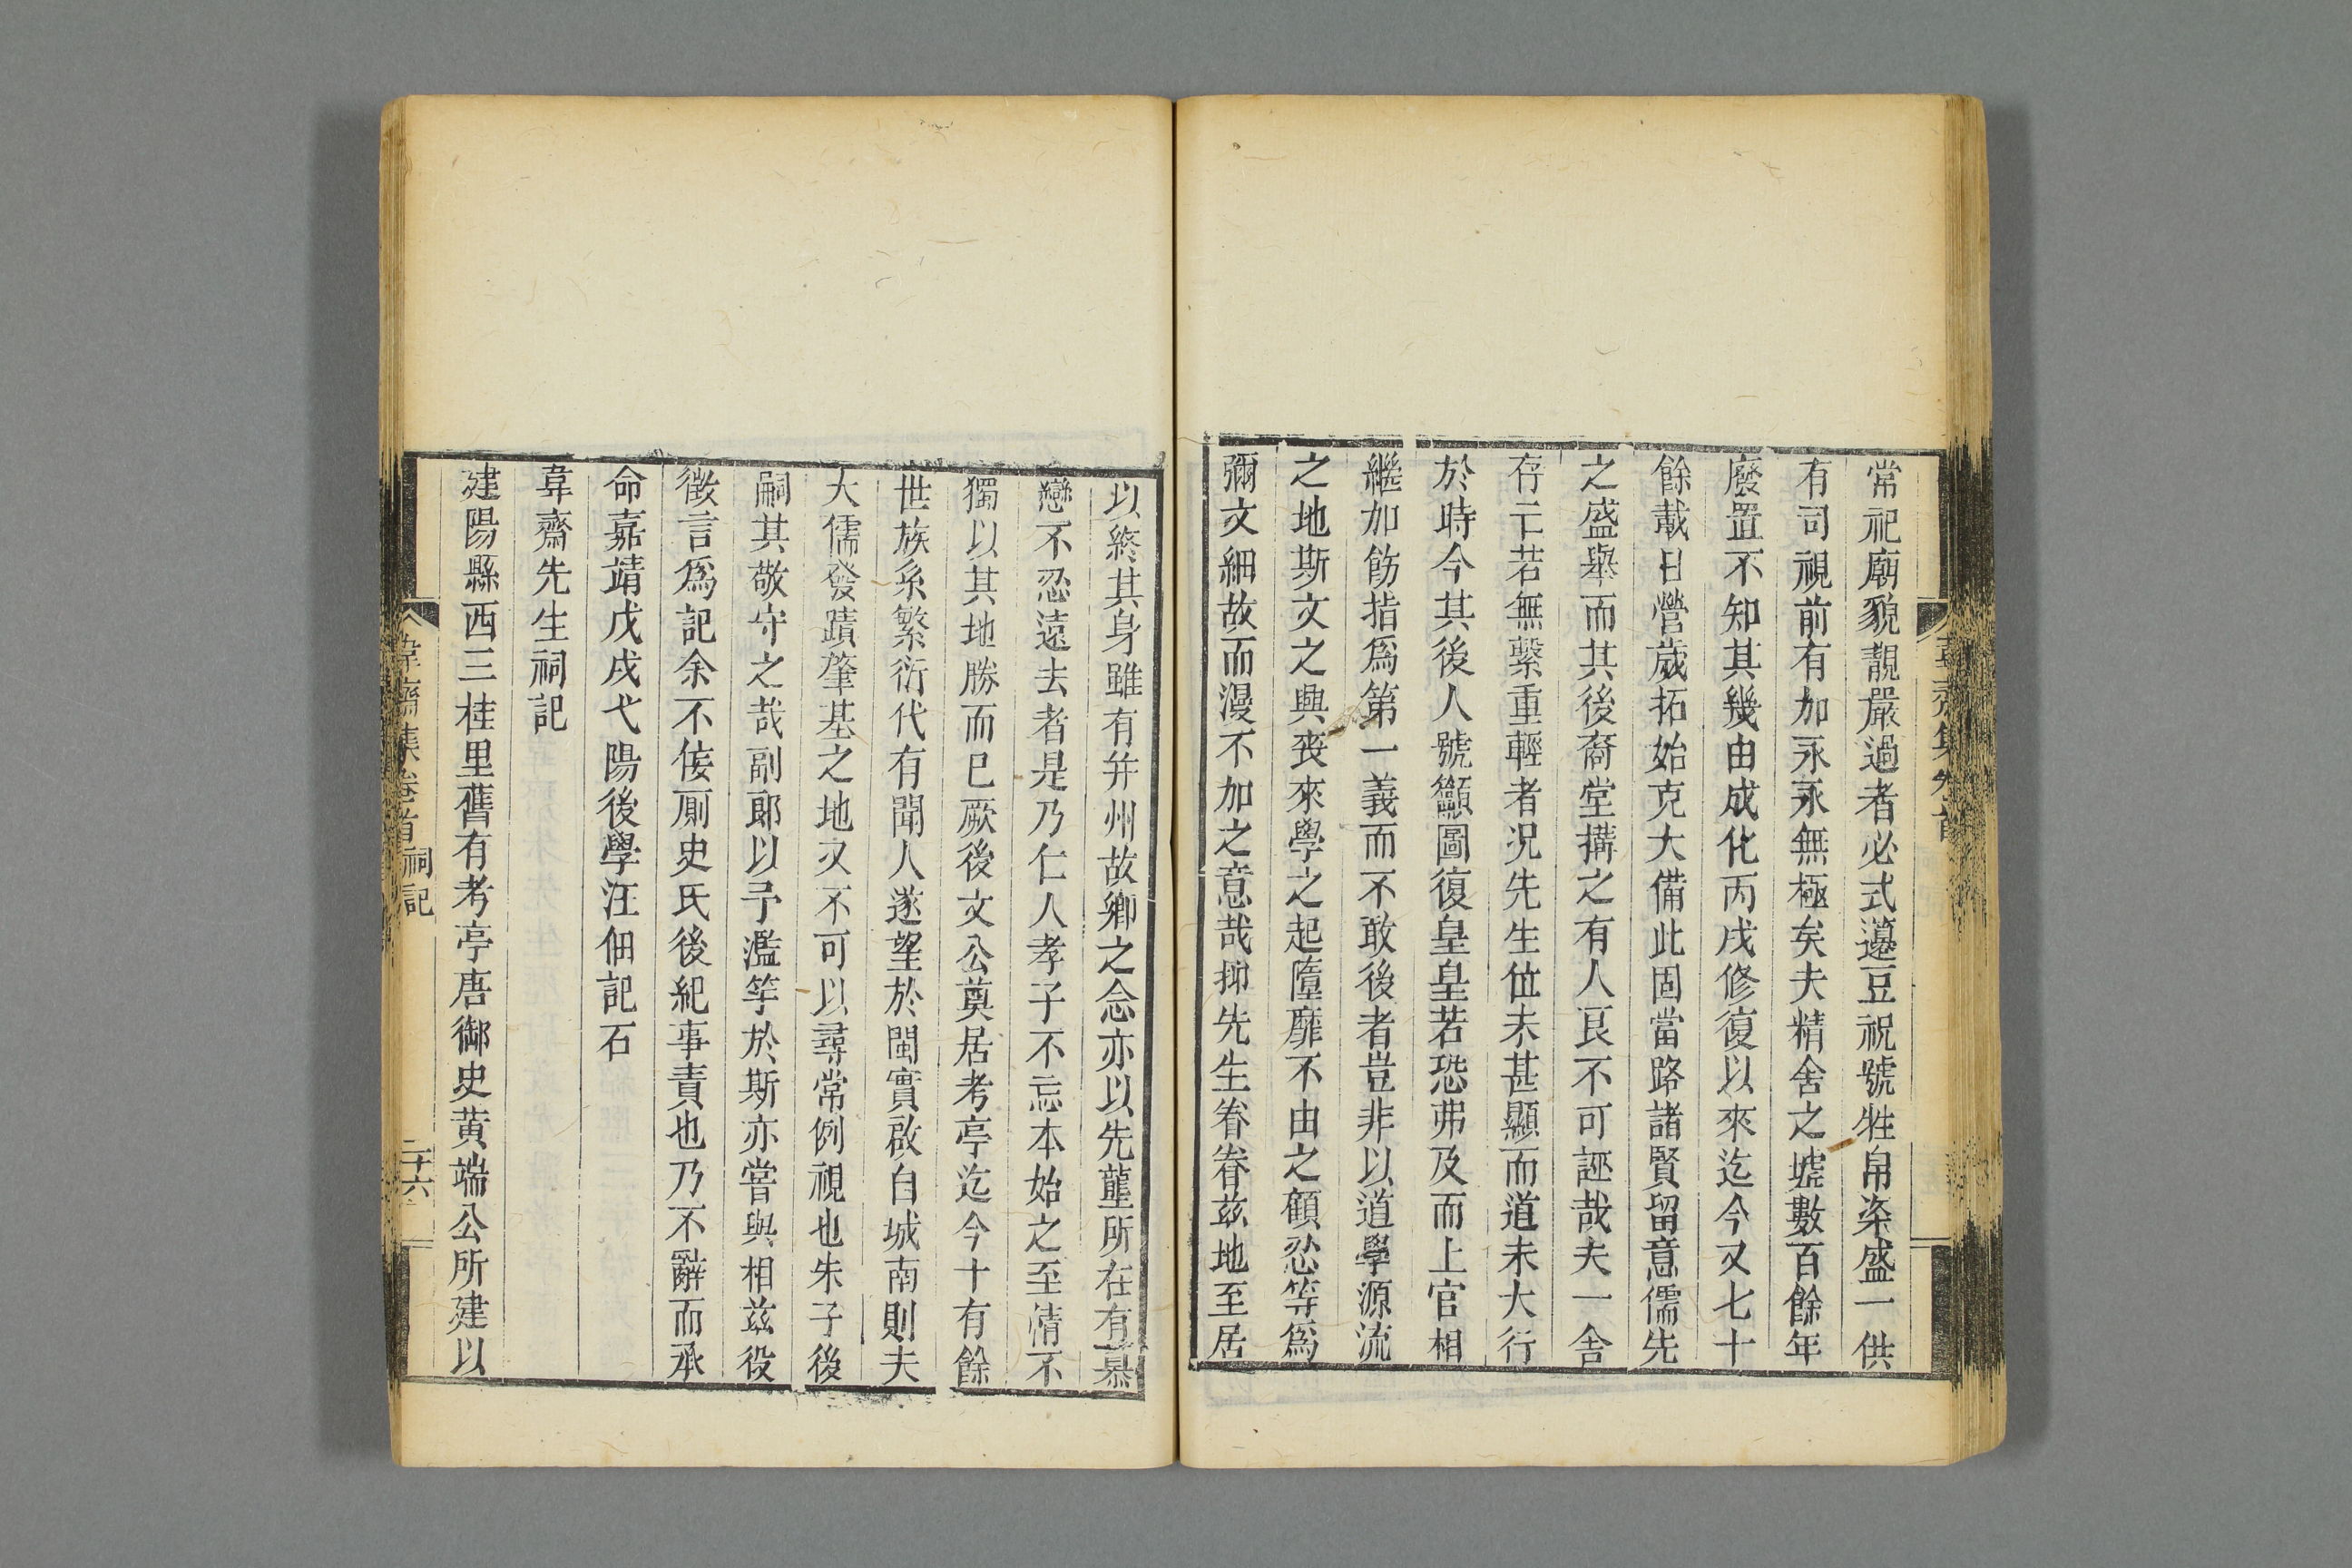 常祀廟貌靚嚴過者必式籩豆祝號牲帛粢盛一供
有司視前有加永永無極矣夫精舍之墟數百餘年
廢置不知其幾由成化丙戌修復以來迄今又七十
餘載日營歲拓始克大備此固當路諸賢留意儒先
之盛舉而其後裔堂搆之有人良不可誣哉夫一舍
存亡若無繫重輕者况先生位未甚顯而道未大行
於時今其後人號籲圖復皇皇若恐弗及而上官相
繼加飭指爲第一義而不敢後者豈非以道學源流
之地斯文之興丧來學之起墮靡不由之顧忍等爲
彌文細故而漫不加之意哉抑先生眷眷兹地至居
以終其身雖有并州故鄉之念亦以先壟所在有慕
戀不忍遠去者是乃仁人孝子不忘本始之至情不
獨以其地勝而已厥後文公奠居考亭迄今十有餘
世族系繁衍代有聞人遂望於閩實啟自城南則夫
大儒發蹟肇基之地又不可以尋常例視也朱子後
嗣其敬守之哉副郎以予濫竽於斯亦嘗與相兹役
徵言爲記余不佞厠史氏後紀事責也乃不辭而承
命嘉靖戊戌弋陽後學汪佃記石
韋齋先生祠記
建陽縣西三桂里舊有考亭唐御史黄端公所建以
韋齋集卷首 祠記 二十六
韋齋集卷首